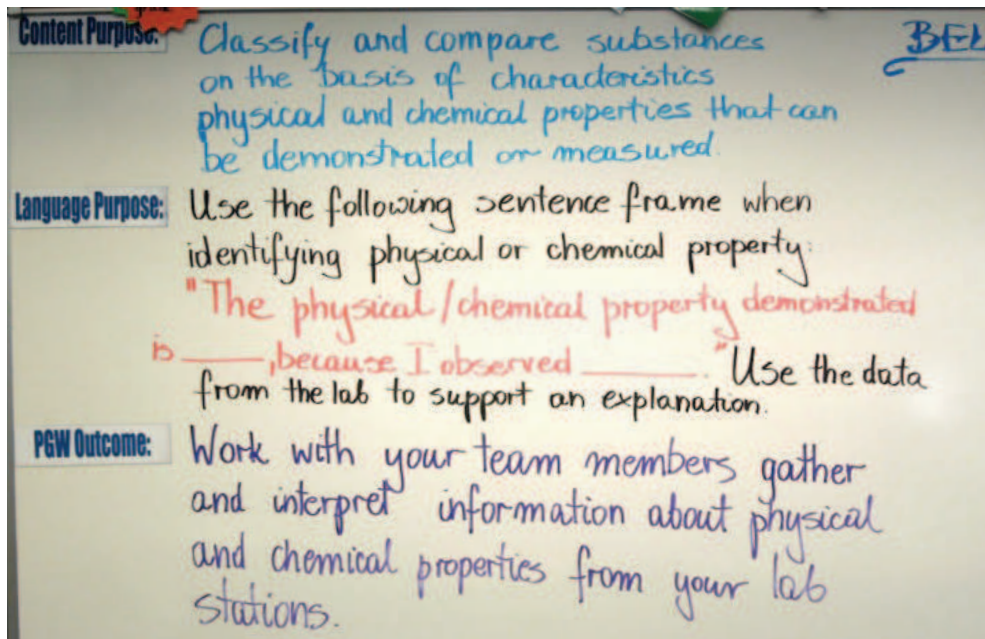 Content Purpose:
Classify and compare substances
on the basis of characteristics
physical and chemical properties that can
be demonstrated or measured.
Language Purpose:
Use the following sentence frame when
identifying physical or chemical property:
"The physical/chemical property demonstrated
is _____, because I observed _______."
Use the data
from the lab to support an explanation.
PGW Outcome:
Work with your team members gather
and interpret information about physical
and chemical properties from your lab
stations.